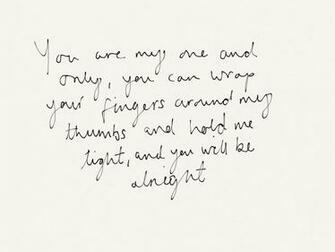 You are my one and
only, you can wrap
your fingers around my
thumbs and hold me
tight, and you will be
alright